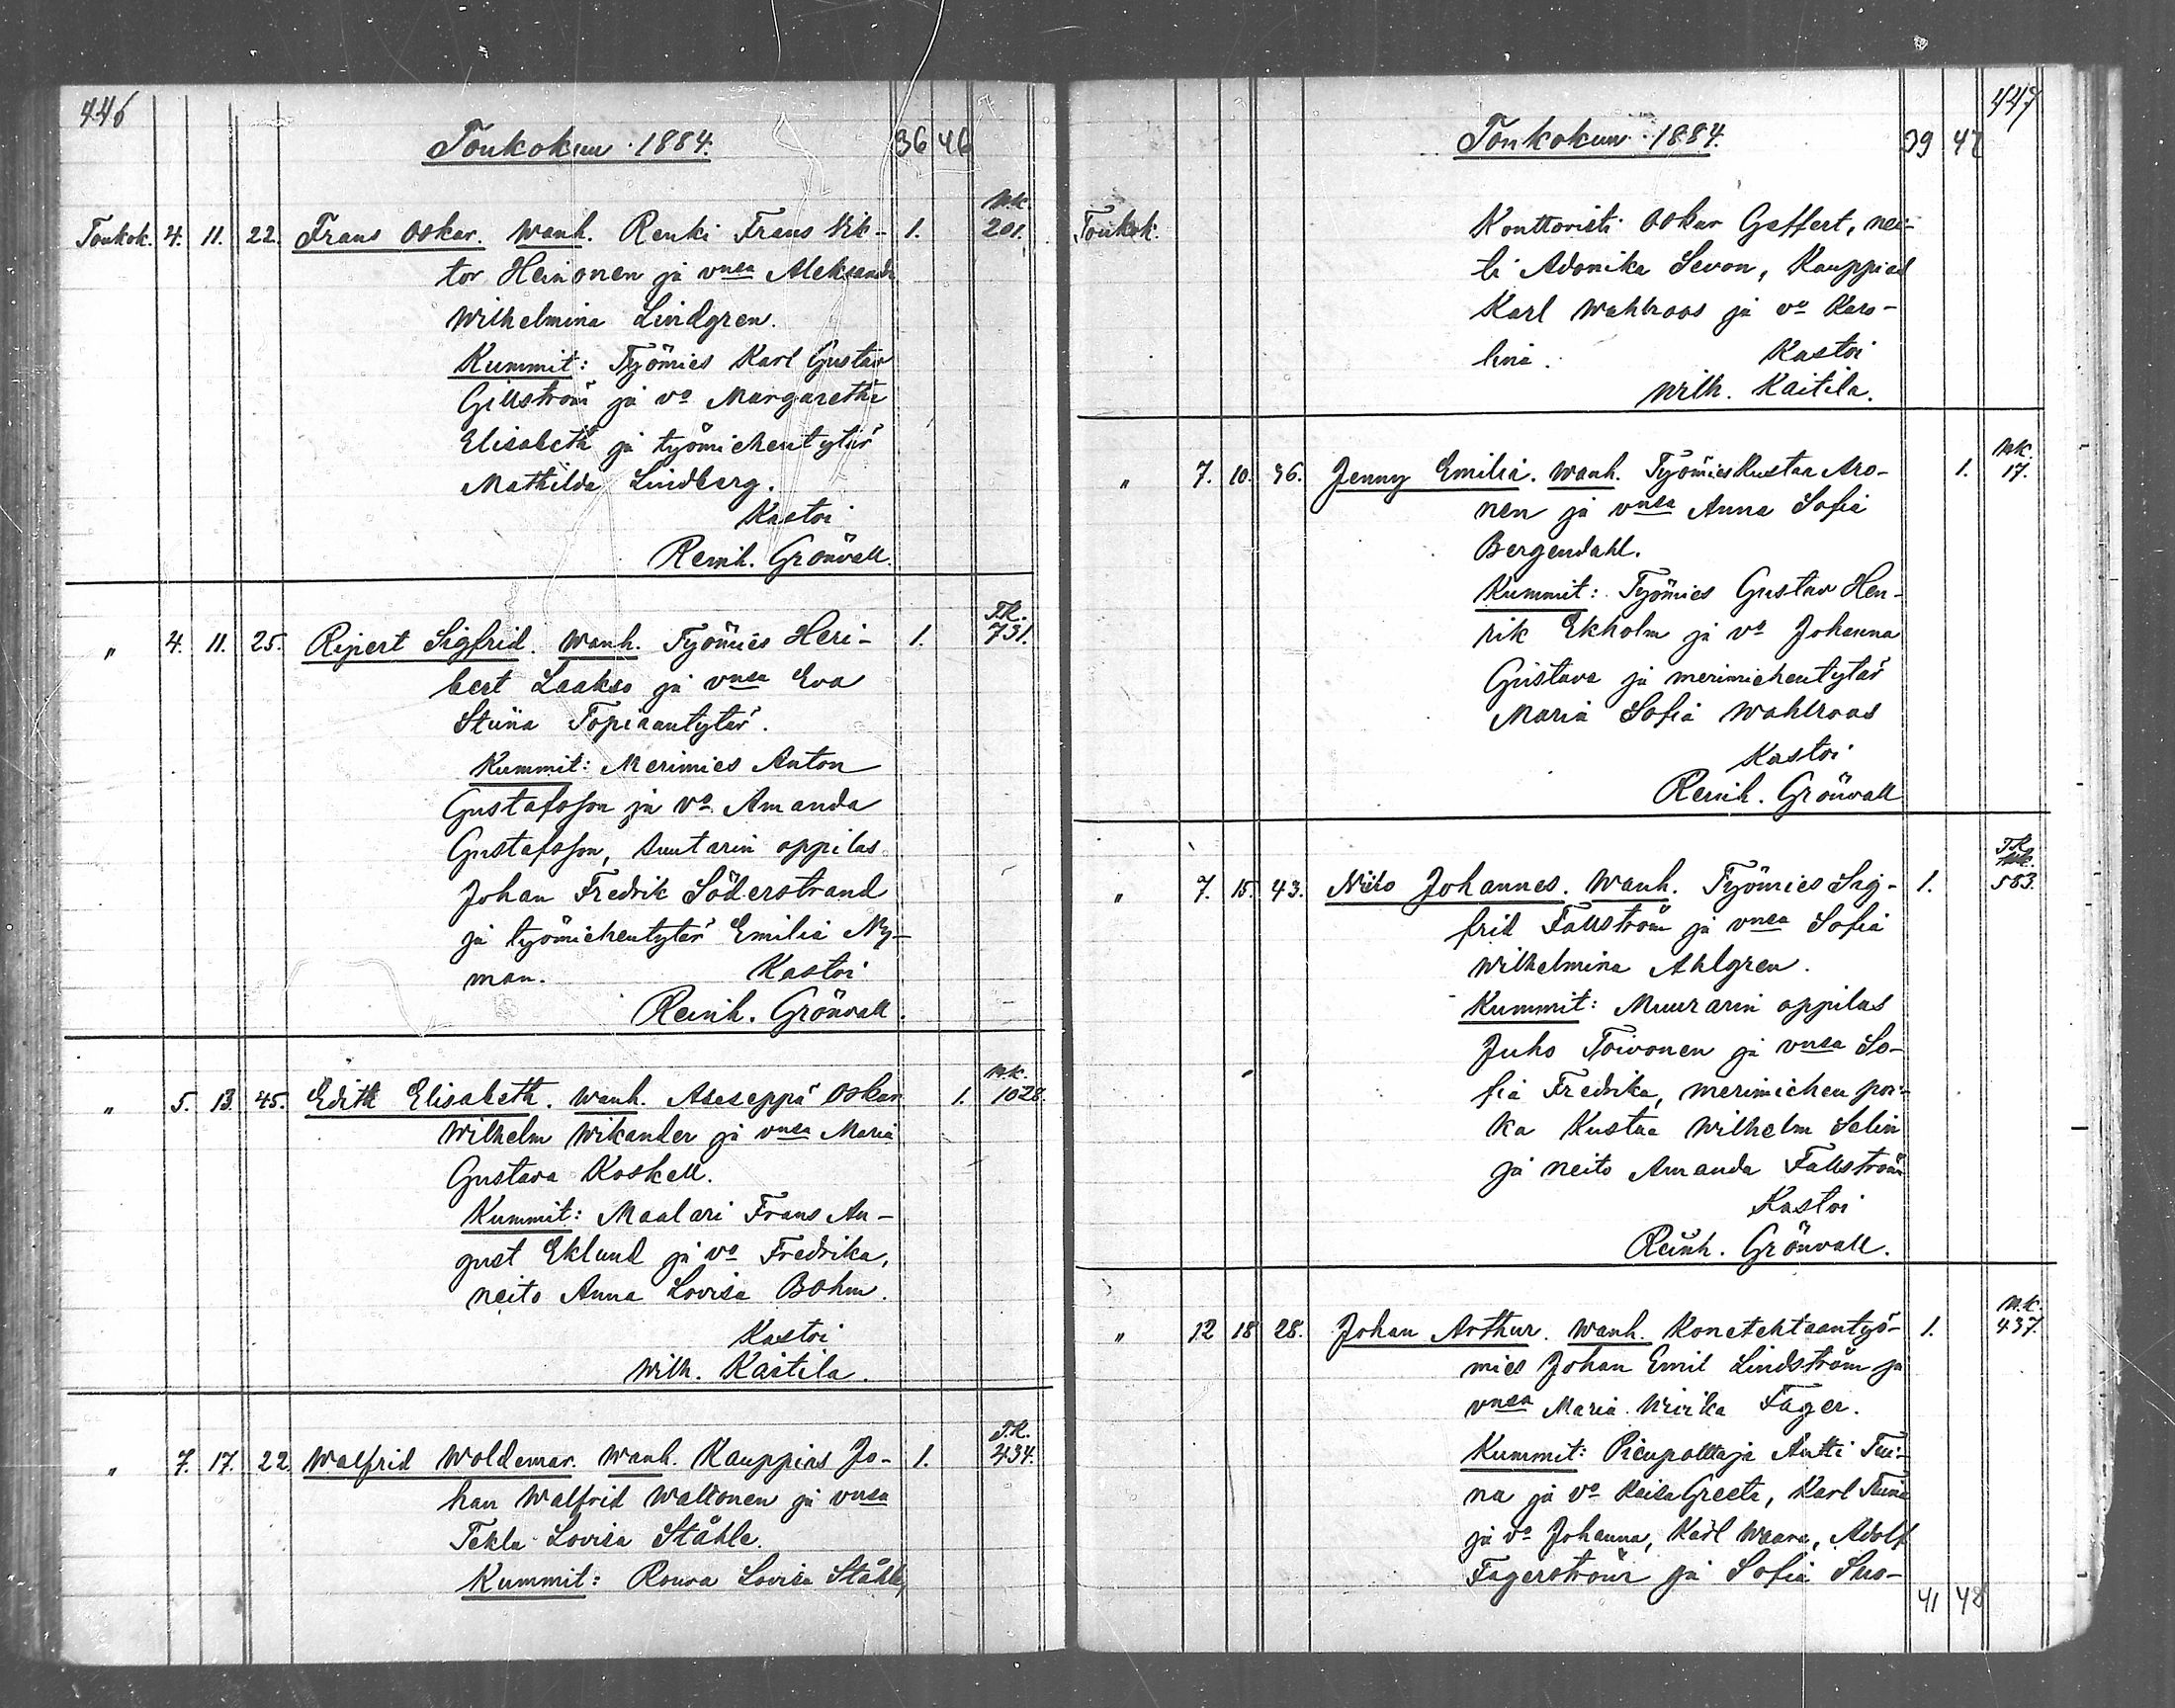 446
Toukokuu 1884. 36 46
N.K.
Toukok. 4. 11. 22. Frans Oskar. Wanh. Renki Frans Vik- 1. 201.
tor Heinonen ja vnsa Aleksandra
Wilhelmina Lindgren.
Kummit: Työmies Karl Gustav
Gillström ja vo Margaretha
Elisabeth ja työmiehentytär
Mathilda Lindberg.
Kastoi
Reinh. Grönvall.
T.K.
" 4. 11. 25. Ripert Sigfrid. Wanh. Työmies Heri- 1. 731.
bert Laakso ja vnsa Eva
Stiina Topiaantytär.
Kummit: Merimies Anton
Gustafsson ja vo Amanda
Gustafsson, suutarin oppilas
Johan Fredrik Söderstrand
ja työmiehentytär Emilia Ny-
man. Kastoi
Reinh. Grönvall.
N.K.
" 5. 13. 45. Edith Elisabeth. Wanh. Aseseppä Oskar 1. 1028.
Wilhelm Wikander ja vnsa Maria
Gustava Koskell.
Kummit: Maalari Frans Au-
gust Eklund ja vo Fredrika,
neito Anna Lovisa Bohm.
Kastoi
Wilh. Kaitila.
T.K.
" 7. 17. 22. Walfrid Woldemar. Wanh. Kauppias Jo- 1. 434.
han Walfrid Waltonen ja vnsa
Tekla Lovisa Ståhle.
Kummit: Rouva Lovisa Ståhle,
447
Toukokuu 1884. 39 47
Toukok. Konttoristi Oskar Geffert, nei-
ti Adonika Sevon, Kauppias
Karl Wahlroos ja vo Karo-
lina. Kastoi
Wilh. Kaitila.
N.K.
" 7. 10. 36. Jenny Emilia. Wanh. Työmies Kustaa Aro- 1. 17.
nen ja vnsa Anna Sofia
Bergendahl.
Kummit: Työmies Gustav Hen-
rik Ekholm ja vo Johanna
Gustava ja merimiehentytär
Maria Sofia Wahlroos
Kastoi
Reinh. Grönvall
T.K.
" 7. 15. 43. Niilo Johannes. Wanh. Työmies Sig- 1. 583.
frid Fallström ja vnsa Sofia
Wilhelmina Ahlgren.
Kummit: Muurarin oppilas
Juho Toivonen ja vnsa So-
fia Fredrika, merimiehen poi-
ka Kustaa Wilhelm Selin
ja neito Amanda Fallström
Kastoi
Reinh. Grönvall.
N.K.
" 12 18 28. Johan Arthur. Wanh. Konetehtaantyö- 1. 437.
mies Johan Emil Lindström ja
vnsa Maria Ulrika Fager.
Kummit: Pienpolttaja Antti Tui-
na ja vo Kaisa Greeta, Karl Tuina
ja vo Johanna, Karl Waara, Adolf
Fagerström ja Sofia Suo-
41 48